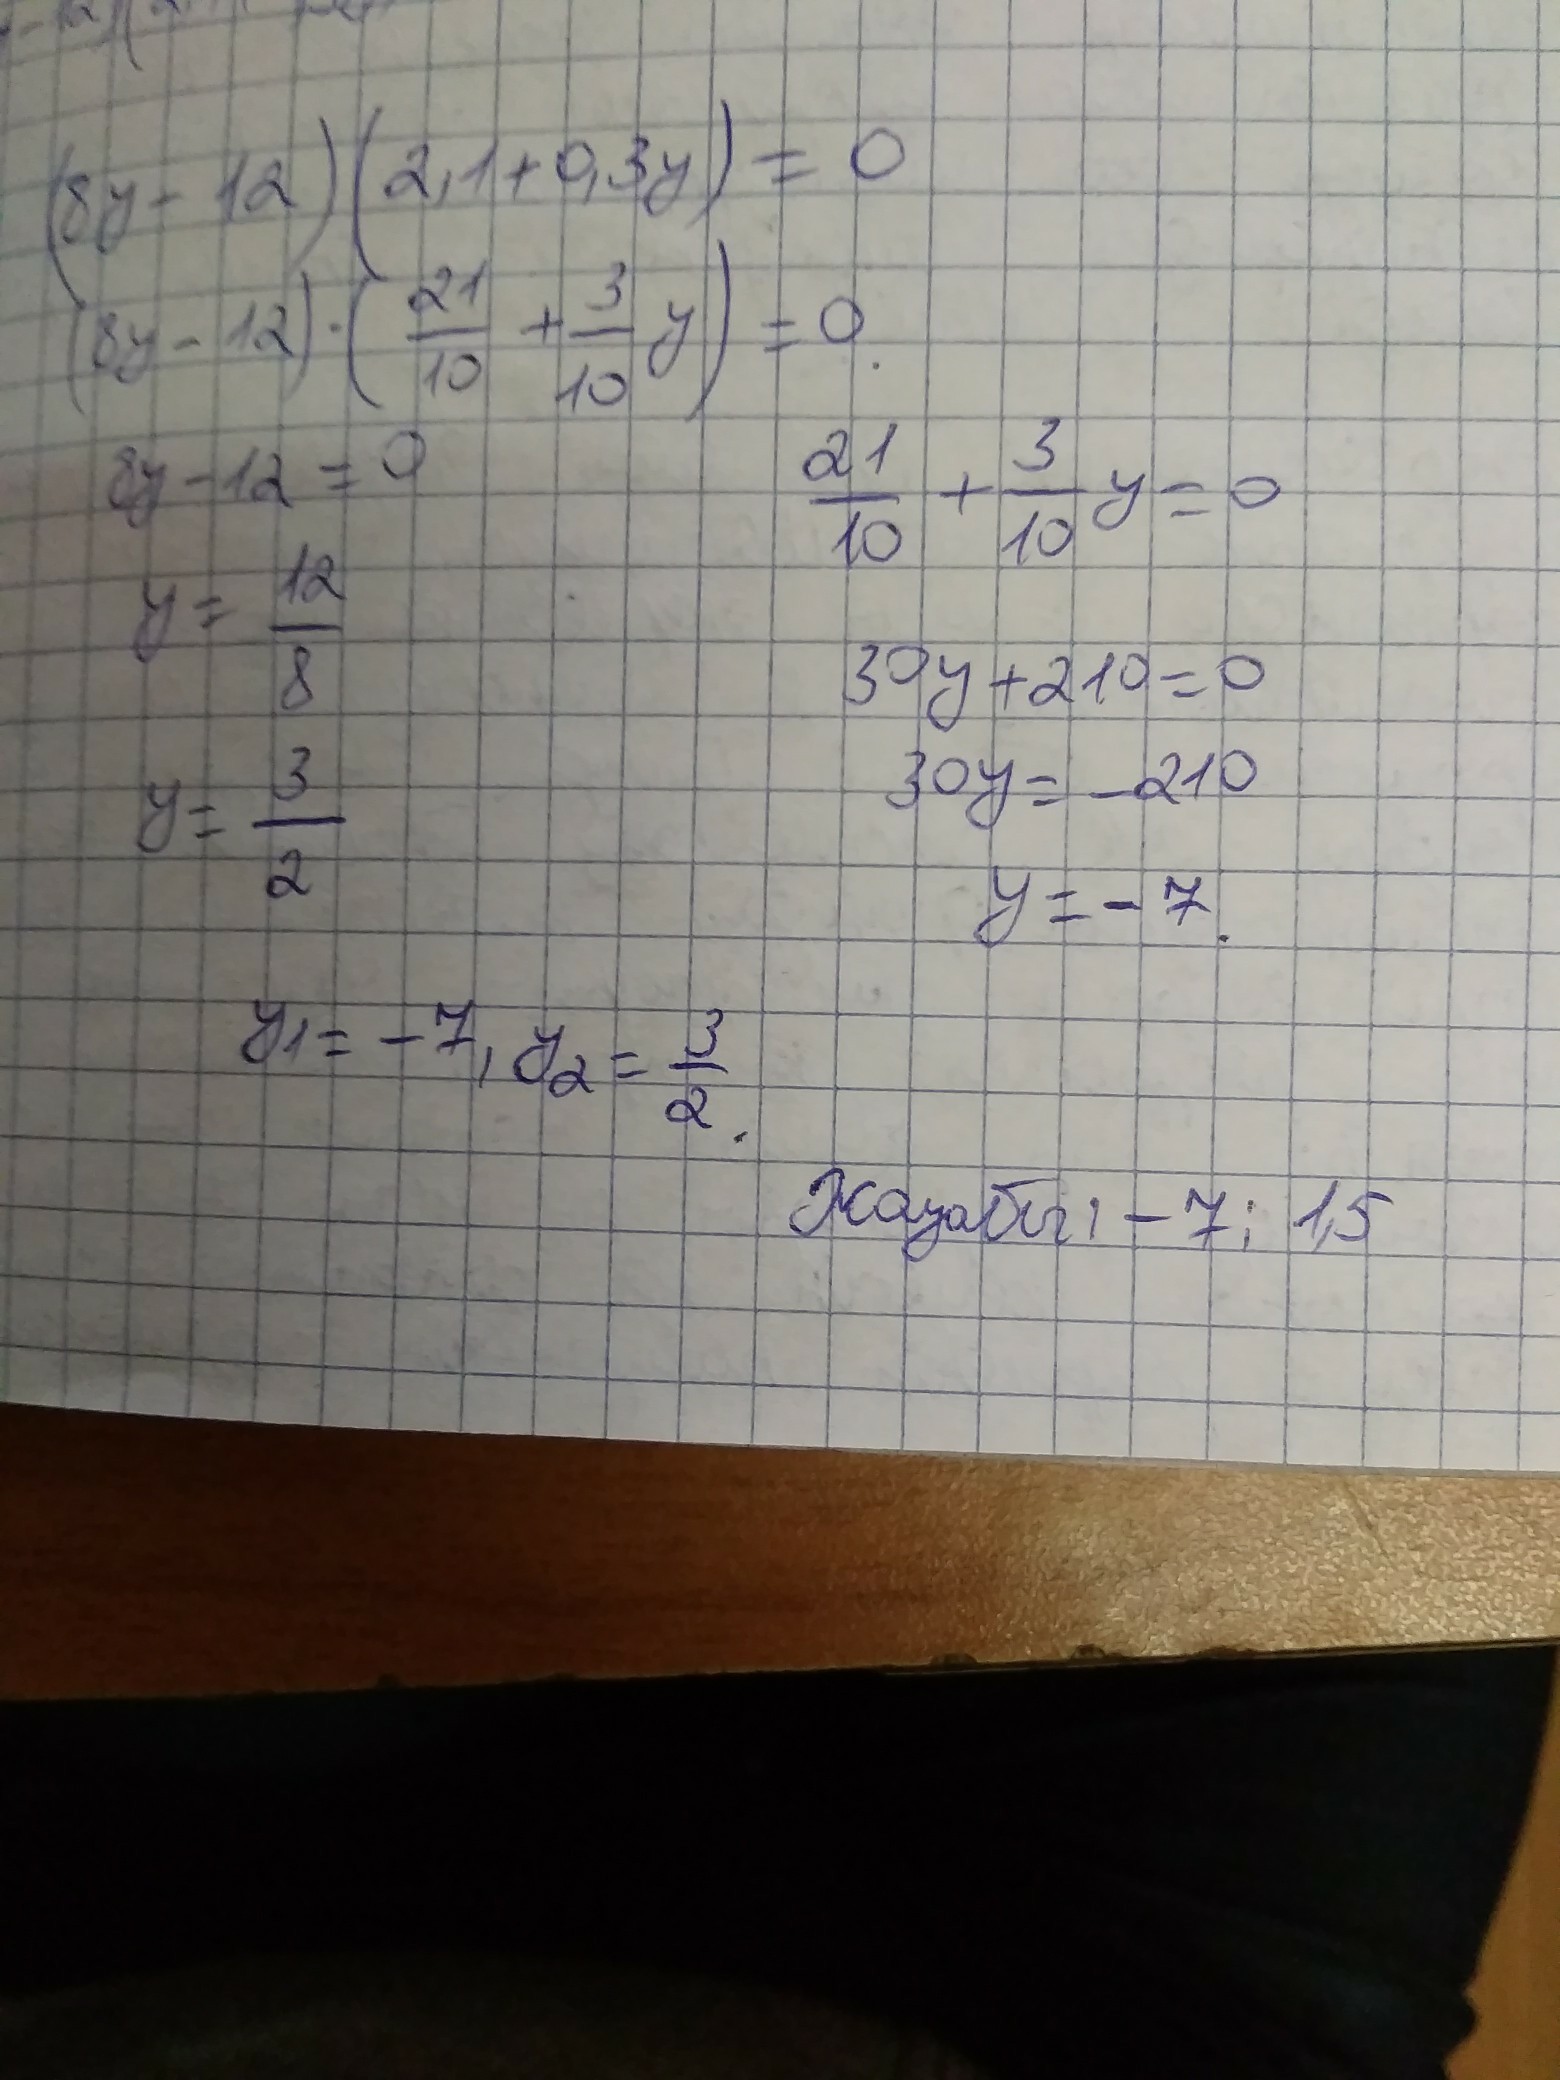 (8y - 12)(2,1 + 0,3y) = 0
(8y - 12) · (21/10 + 3/10 y) = 0.
8y - 12 = 0
y = 12/8
y = 3/2
21/10 + 3/10 y = 0
30y + 210 = 0
30y = -210
y = -7.
y₁ = -7, y₂ = 3/2.
Жауабы: -7; 1,5